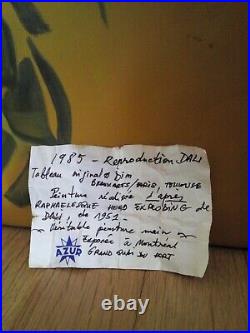 1985 - Reproduction DALI
Tableau original Dim
BEAUX ARTS / PARIS, TOULOUSE
Peinture réalisée d'après
RAPHAELESQUE HEAD EXPLODING de
DALI, de 1951.
Véritable peinture main
Exposée à Montréal
AZUR GRAND QUAI DU PORT
pixels.com